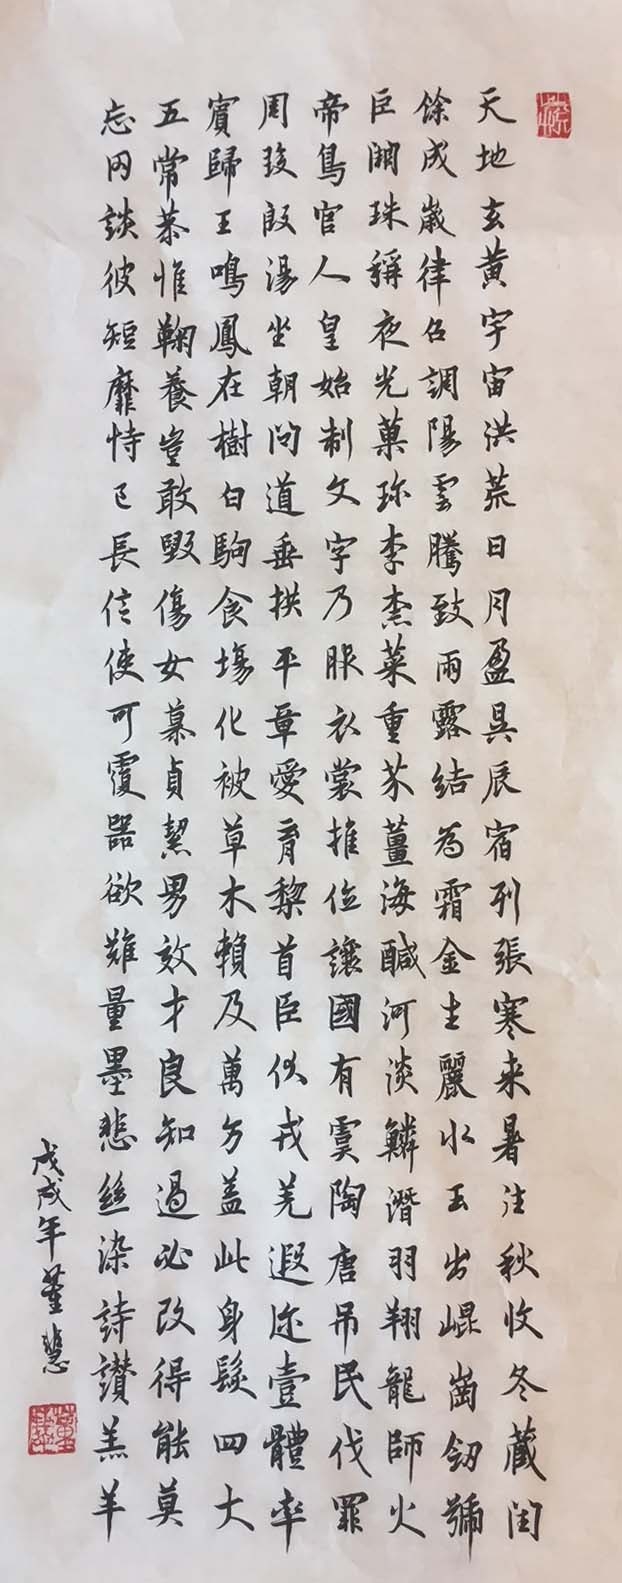 天地玄黃宇宙洪荒日月盈昃辰宿列張寒来暑往秋收冬藏閏
餘成嵗律召調陽雲騰致雨露結為霜金生麗水玉出崐崗劒號
巨闕珠稱夜光菓珎李柰菜重芥薑海鹹河淡鱗潛羽翔龍師火
帝鳥官人皇始制文字乃服衣裳推位讓國有虞陶唐吊民伐罪
周發殷湯坐朝問道垂拱平章愛育黎首臣伏戎羌遐迩壹體率
賓歸王鳴鳳在樹白駒食場化被草木賴及萬方蓋此身髮四大
五常恭惟鞠養豈敢毀傷女慕貞絜男效才良知過必改得能莫
忘罔談彼短靡恃己長信使可覆器欲難量墨悲絲染詩讚羔羊
戊戌年董慧